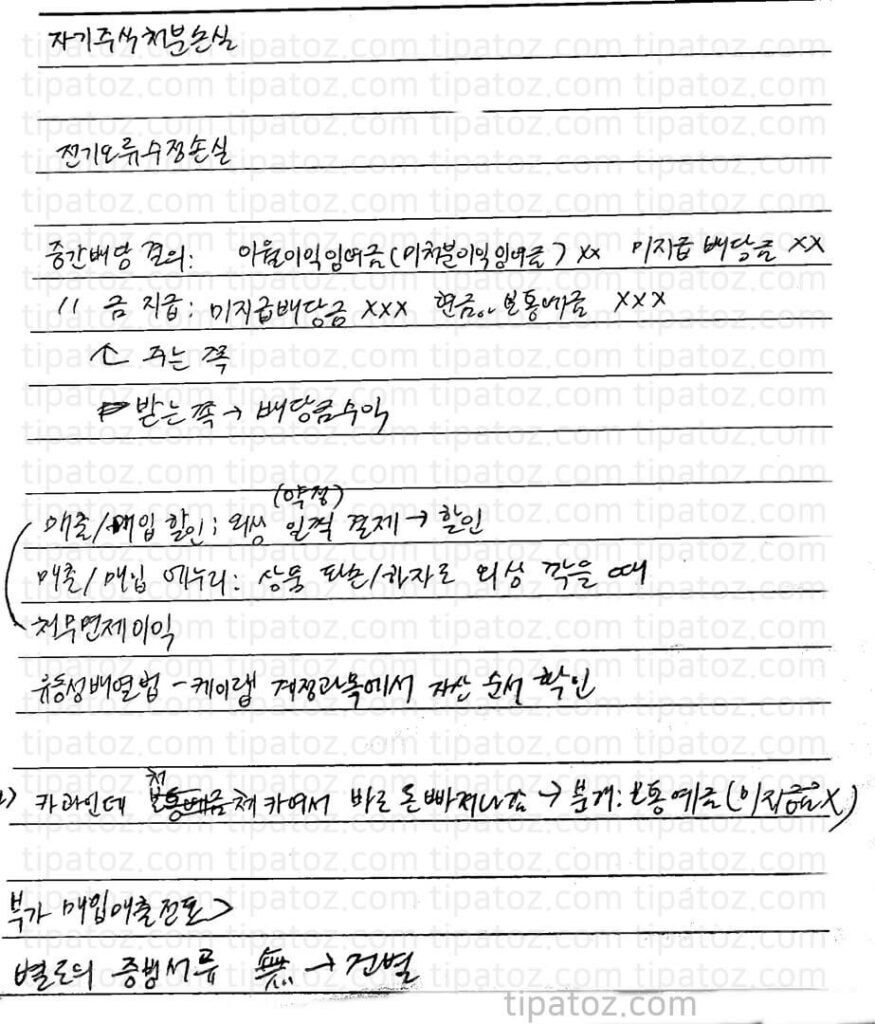 자기주식처분손실
전기오류수정손실
중간배당 결의: 이월이익잉여금(미처분이익잉여금) xx 미지급 배당금 xx
〃 금 지급: 미지급배당금 xxx 현금or보통예금 xxx
↑ 주는 쪽
받는쪽 → 배당금수익
(약정)
매출/매입 할인; 외상 일찍 결제 → 할인
매출/매입 에누리: 상품 파손/하자로 외상 깍을 때
채무면제이익
유동성배열법 - 케이랩 계정과목에서 자산 순서 확인
카과인데 체카여서 바로 돈빠져나감 → 분개: 보통예금(미지급금X)
부가 매입매출전표>
별도의 증빙서류 無 → 건별
tipatoz.com